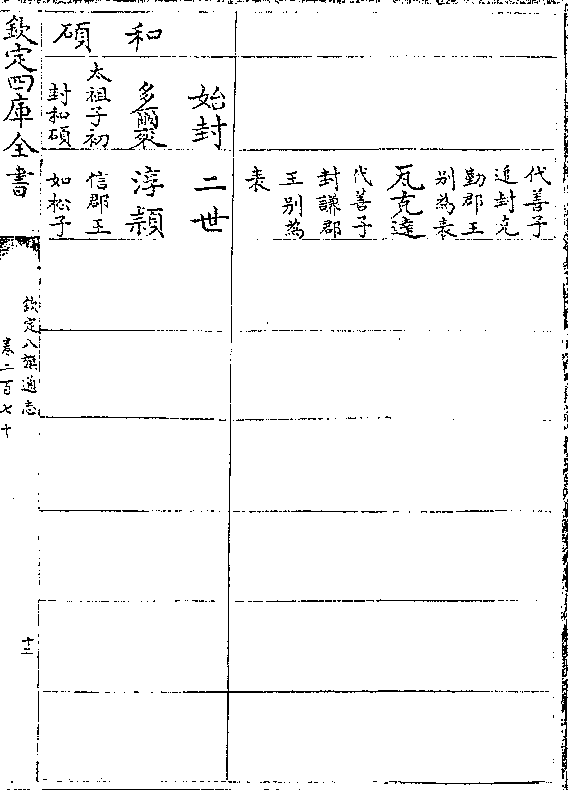 代善子
追封克
勤郡王
别為表
瓦克達
代善子
封謙郡
王别為
表
和碩
始封
多爾衮
太祖子初
封和碩
二世
淳穎
信郡王
如松子
欽定四庫全書
欽定八旗通志
卷二百七十
十三